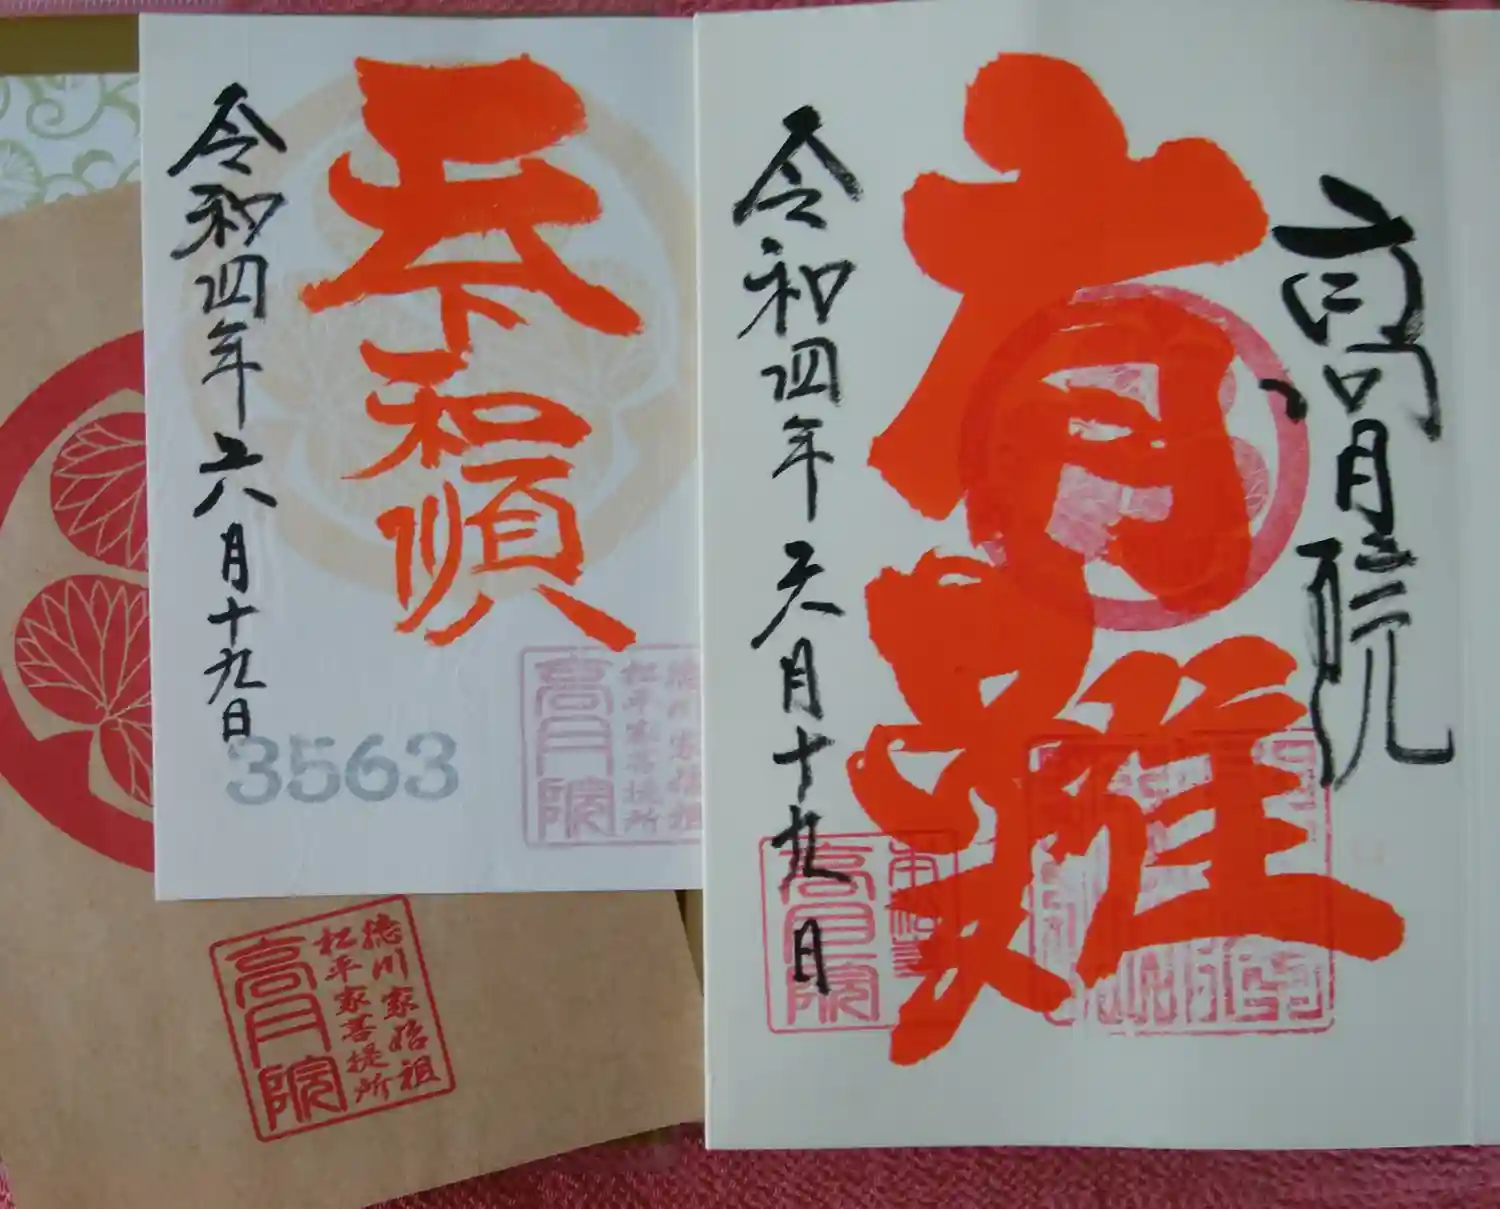 高月院
有難
令和四年六月十九日
高月院
天下和順
令和四年六月十九日
3563
高月院
松平家菩提所
徳川家始祖
松平家菩提所
高月院